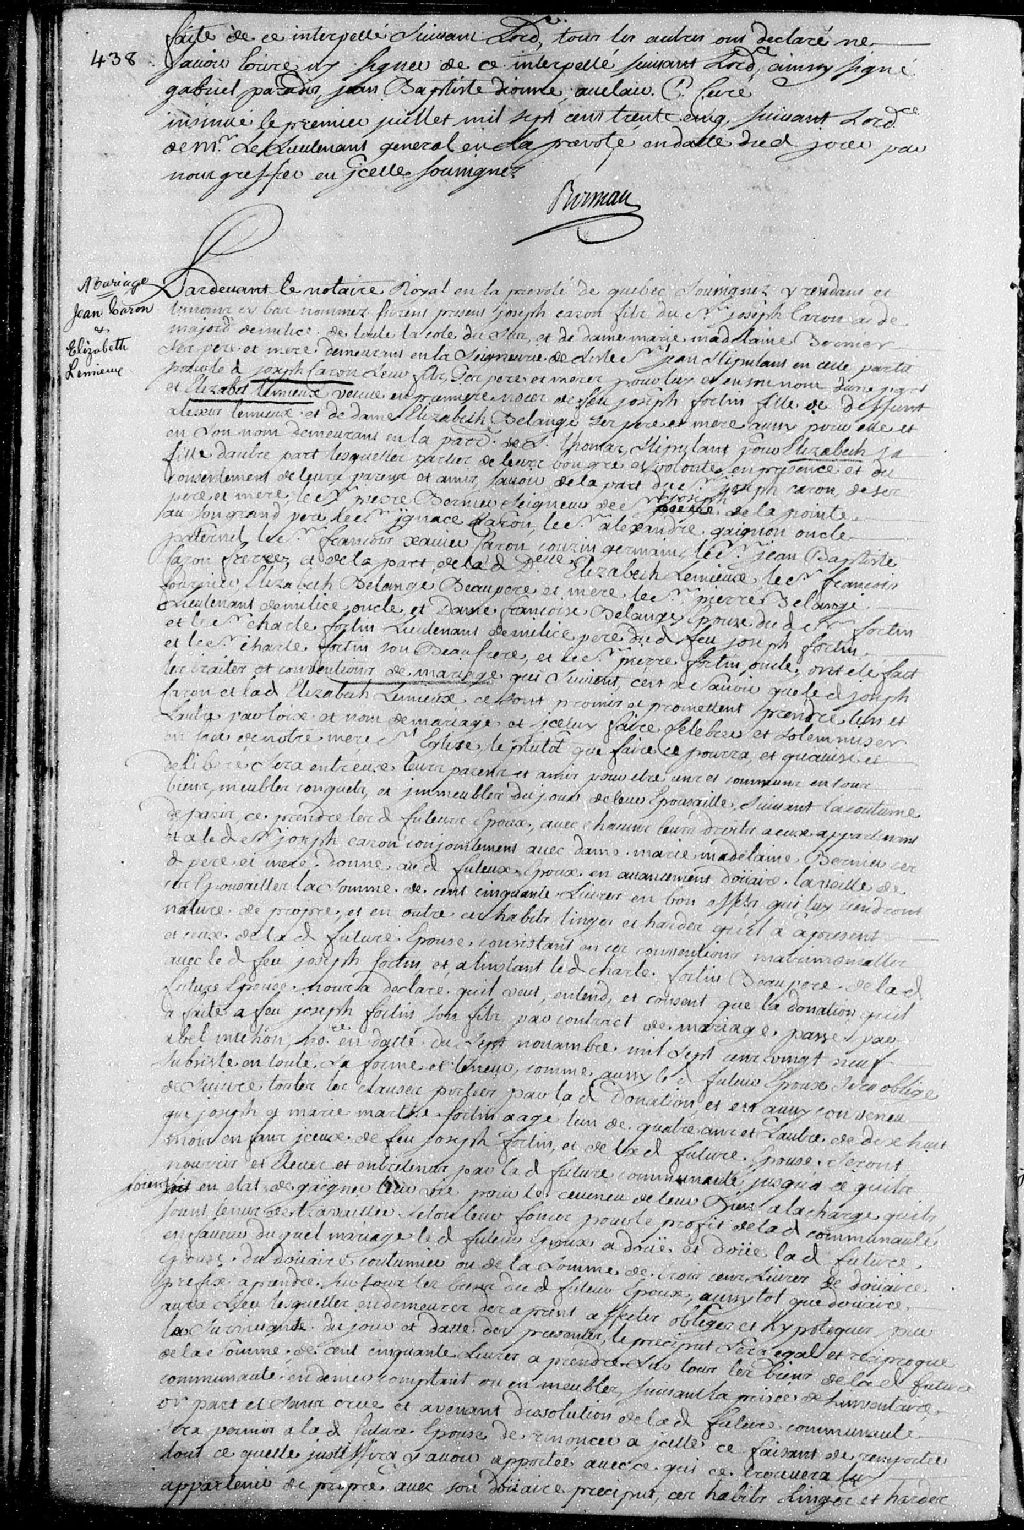 438
faite de ce interpellé suivant Lord.ce tous les autres ont declaré ne
savoir Ecrire ny signer de ce interpellé suivant Lord.ce aussy signé
gabriel paradis, jean Baptiste dionne, auclair P. Cure
insinué le premier juillet mil sept cens trente cinq, suivant Lord.ce
de mr. Le Lieutenant general en la prevoté en datte dud jour par
nous greffier en jcelle soussigné
Boirmau
Mariage
Jean Caron
&
Elizabeth
Lemieux
Pardevant le notaire Royal en la prevoté de quebec soussigné y residant et
temoins cy bas nommez furent present joseph caron fils du Sr. joseph Caron
major de milice de toute la cote du Sud, et de dame marie madelaine Bernier
ses pere et mere demeurans en la Seigneurie de Sr. jean stipulans en cette partie
pour led joseph Caron Leur fils, pour luy et en son nom dune part
et Elizabet Lemieux veuve en premiere noces de feu joseph fortin fille de deffunt
Lemieux et de dame Elizabeth Belangé ses pere et mere aussy pour elle et
en son nom demeurans en la par. de St. thomas, stipulant pour Elizabeth sa
fille dautre part lesquelles parties de leurs bon gré et volonté en presence et du
consentement de leurs parens et amis, savoir de la part du Sr. joseph caron de ses
pere et mere, le Sr. pierre Bernier Seigneur de St. joseph de la pointe
au son grand pere, le Sr. ignace Caron, le Sr. alexandre gaignon oncle
paternel, le Sr. francois xavier Caron cousin germain, le Sr. jean Baptiste
Caron frere, et de la part de lad D.elle Elizabeth Lemieux le Sr. francois
Elizabeth Belange Beaupere et mere, le Sr. pierre Belangé
Lieutenant de milice oncle et Dame francoise Belange Epouse dud Sr. fortin
et le Sr. charle fortin Lieutenant de milice pere dud feu joseph fortin
et le Sr. charle fortin son Beaufrere, et le Sr. pierre fortin oncle, ont eté fait
les traités et conventions de mariage qui suivent, cest a savoir que led joseph
Caron et lad Elizabeth Lemieux ce sont promis et promettent prendre lun et
Lautre par loix et nom de mariage et jceluy faire Celebrer et solemniser
en face de notre mere Ste. Eglise, le plutôt que faire ce pourra, et quavisé et
deliberé sera entreux leurs parens et amis pour etre uns et communs en tous
biens, meubles conquets, et jmmeubles du jour de leur Epousaille, suivant la coutume
de paris, ce prendre les d futeurs Epoux, avec chacuns leurs droits a eux appartenans
et a led Sr. joseph caron conjointement avec dame marie madelaine Bernier ces
d pere et mere, donne aud futeur Epoux en avancement doüaire, la veille de
ces Epousailles la Somme de cent cinquante Livres en bon effets qui luy tiendront
nature de propre, et en outre ces habits linges et hardes quil a à present
et ceux de lad future Epouse consistant en ces conventions matrimonialles
avec led feu joseph fortin, et alinstant led charle fortin Beaupere de lad
future Epouse, nous a declaré quil veut, entend, et consent que la donation quil
a faite a feu joseph fortin son fils par contract de mariage passé par
abel michon, no.re en datte du sept novembre mil sept cens vingt neuf
subsiste en toute sa forme et teneur, comme aussy led futeur Epoux sera obligé
de suivre toutes les clauses portées par lad Donation, et est aussy convenu
que joseph & marie marthe fortin aagé lun de quatre ans et Lautre de dix huit
mois enfans jceux de feu joseph fortin, et de lad future Epouse seront
nouris et Elevé et entretenus par lad future communauté jusqua ce quils
soient en etat de gaigner leur vie pour le revenu de leur biens a la charge quils
seront tenus de travailler selon leur forces pour le profit de lad communauté,
en faveur du quel mariage led futeur Epoux a doüé et doüe lad future
Epouse, du doüaire coutumier ou de la somme de trois cens Livres de doüaire
prefix a prendre sur tous les biens dud futeur Epoux, aussytot que doüaire
aura Lieu lesquelles en demeurer des a present affectés obligés et hypotequés
La survivante du jour et datte des presentes, le preciput sera egal et reciproque
de la somme de cent cinquante Livres a prendre sur tous les biens de lad future
communauté en deniers comptant ou en meubles, suivant la prisée de Linventaire
part et sans crue et avenant dissolution de lad future communauté
sera permis a lad future Epouse de renoncer a jcelle ce faisant de remporter
tout ce quelle justifira y avoir apportée avec ce qui ce trouvera luy
appartenir de propre avec son doüaire preciput, ces habits Linges et hardes